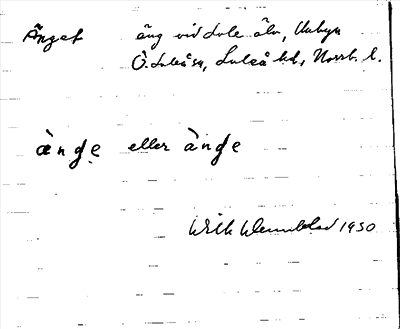 Änget äng vid Lule älv, Unbyn
Ö. Luleå sn, Luleå hd, Norrb. l.
ànge eller ànge
Wilh Wennblad 1930